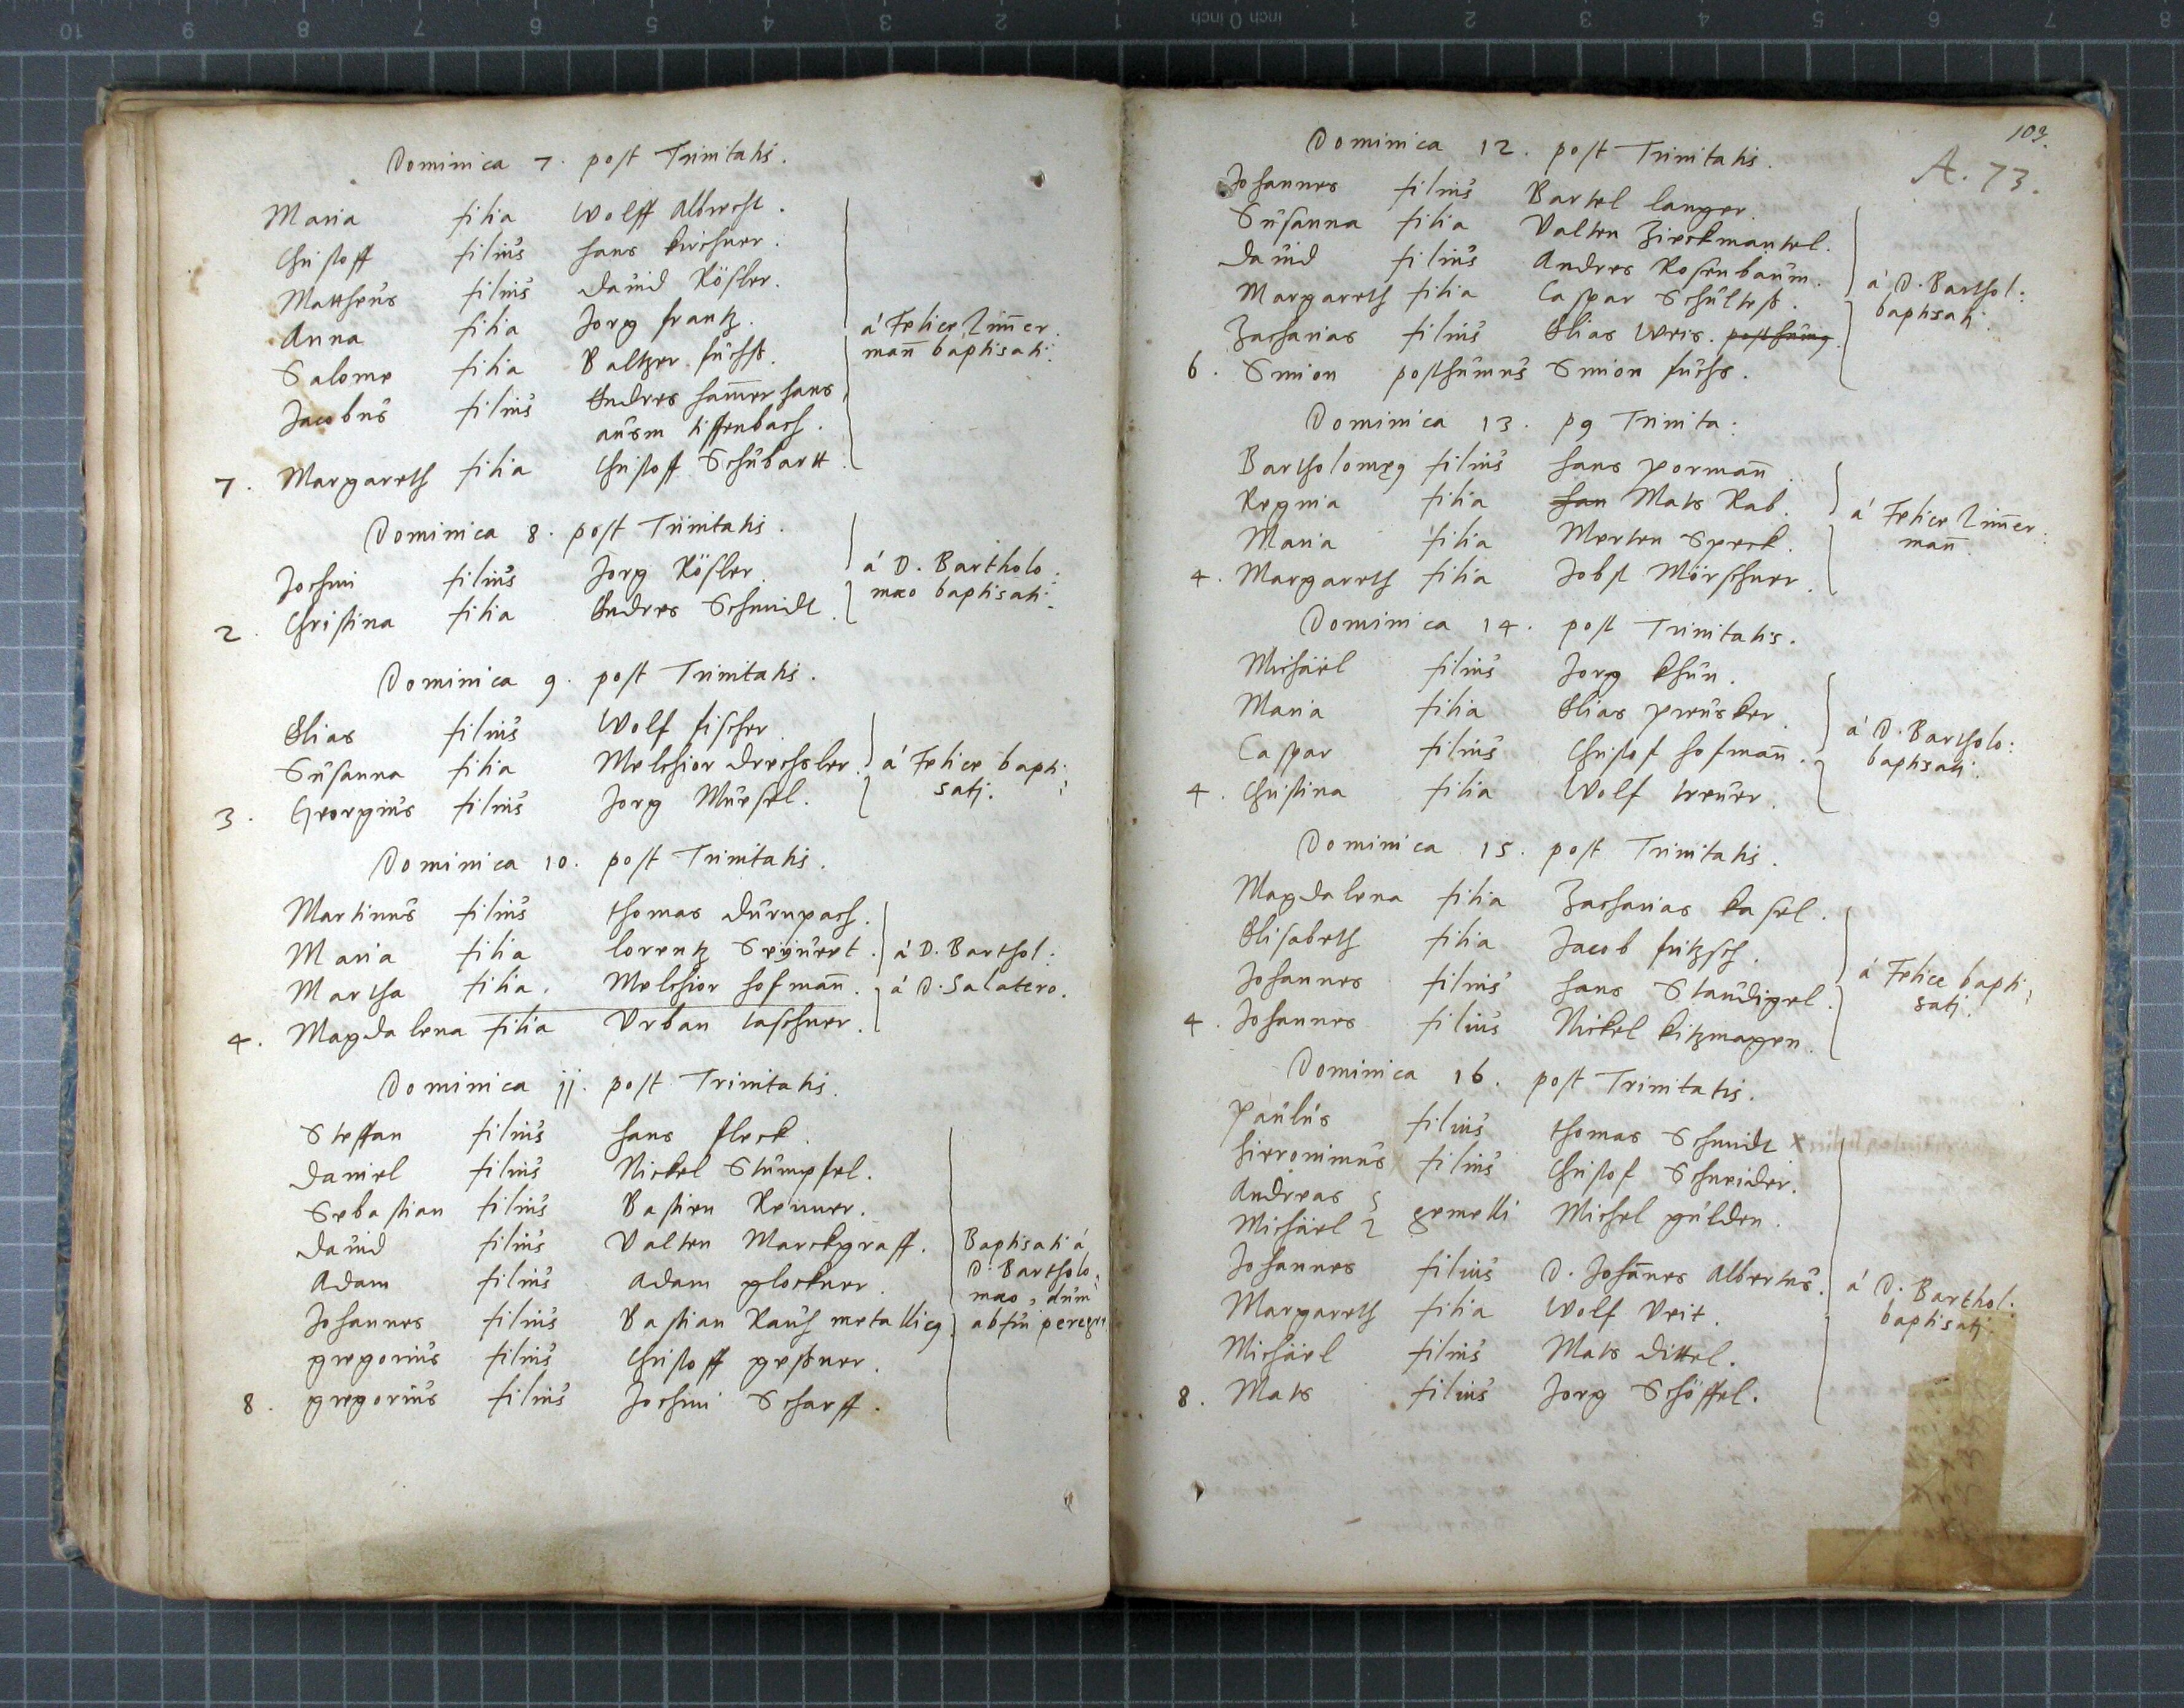 Dominica 7. post Trinitatis.
Maria filia Wolff Albrecht.
Christoff filius Hans Kirchner.
Mattheus filius David Rösler.
Anna filia Jorg Frantz.
Salome filia Baltzer Fuchs.
Jacobus filius Endres Ham̄erhans
ausm tiffenbach.
7. Margareth filia Christoff Schubartt.
á Felice Zim̄er.
man̄ baptisati.
Dominica 8. post Trinitatis.
Jochim filius Jorg Rösler.
2. Christina filia Endres Schmidt.
á D. Bartholo:
maeo baptisati.
Dominica 9. post Trinitatis.
Elias filius Wolf Fischer.
Susanna filia Melchior Drechsler.
3. Georgius filius Jorg Meusel.
á Felice bapti:
satj.
Dominica 10. post Trinitatis.
Martinus filius Thomas Durnpach.
Maria filia Lorentz
Martha filia. Melchior Hofman̄.
4. Magdalena filia Urban Taschner.
á D. Barthol:
á D. Salatero.
Dominica jj. post Trinitatis.
Steffan filius Hans Fleck.
Daniel filius Nickel Stumpfel.
Sebastian filius Bastien Renner.
David filius Valten Marckgraff.
Adam filius Adam Glockner.
Johannes filius Bastian Rauh metallicg.
Gregorius filius Christoff Gessner.
8. Gregorius filius Jochim Scharff.
Baptisati á
D. Bartholo:
maeo, dum
absum peregre
103.
A. 73.
Dominica 12. post Trinitatis.
Johannes filius Bartel Langer.
Susanna filia Valten Zieckmantel.
David filius Andres Rosenbaum.
Margareth filia Caspar Schultess.
Zacharias filius Elias Weis. posthumg.
6. Simon posthumus Simon Fuchs.
á D. Barthol:
baptisati.
Dominica 13. pg Trinita:
Bartholomęg filius Hans Porman̄.
Regina filia Han Mats Rab.
Maria filia Merten Speck.
4. Margareth filia Jobst Mörschner.
á Felice Zim̄er:
man̄.
Dominica 14. post Trinitatis.
Michäel filius Jorg Khun.
Maria filia Elias Preusker.
Caspar filius Christof Hofman̄.
4. Christina filia Wolf Treuer.
á D. Bartholo:
baptisatj.
Dominica 15. post Trinitatis.
Magdalena filia Zacharias Kasel.
Elisabeth filia Jacob Fritzsch.
Johannes filius Hans Staudigel.
4. Johannes filius Nickel Kitzmagen.
á Felice bapti:
satj.
Dominica 16. post Trinitatis.
Paulus filius Thomas Schmidt x
Hieronimus filius Christof Schneider.
Andreas
Michäel gemelli Michel Gulden.
Johannes filius D. Johan̄es Albertus.
Margareth filia Wolf Veit.
Michäel filius Mats Dittel.
8. Mats filius Jorg Schöffel.
á D. Barthol:
baptisatj.